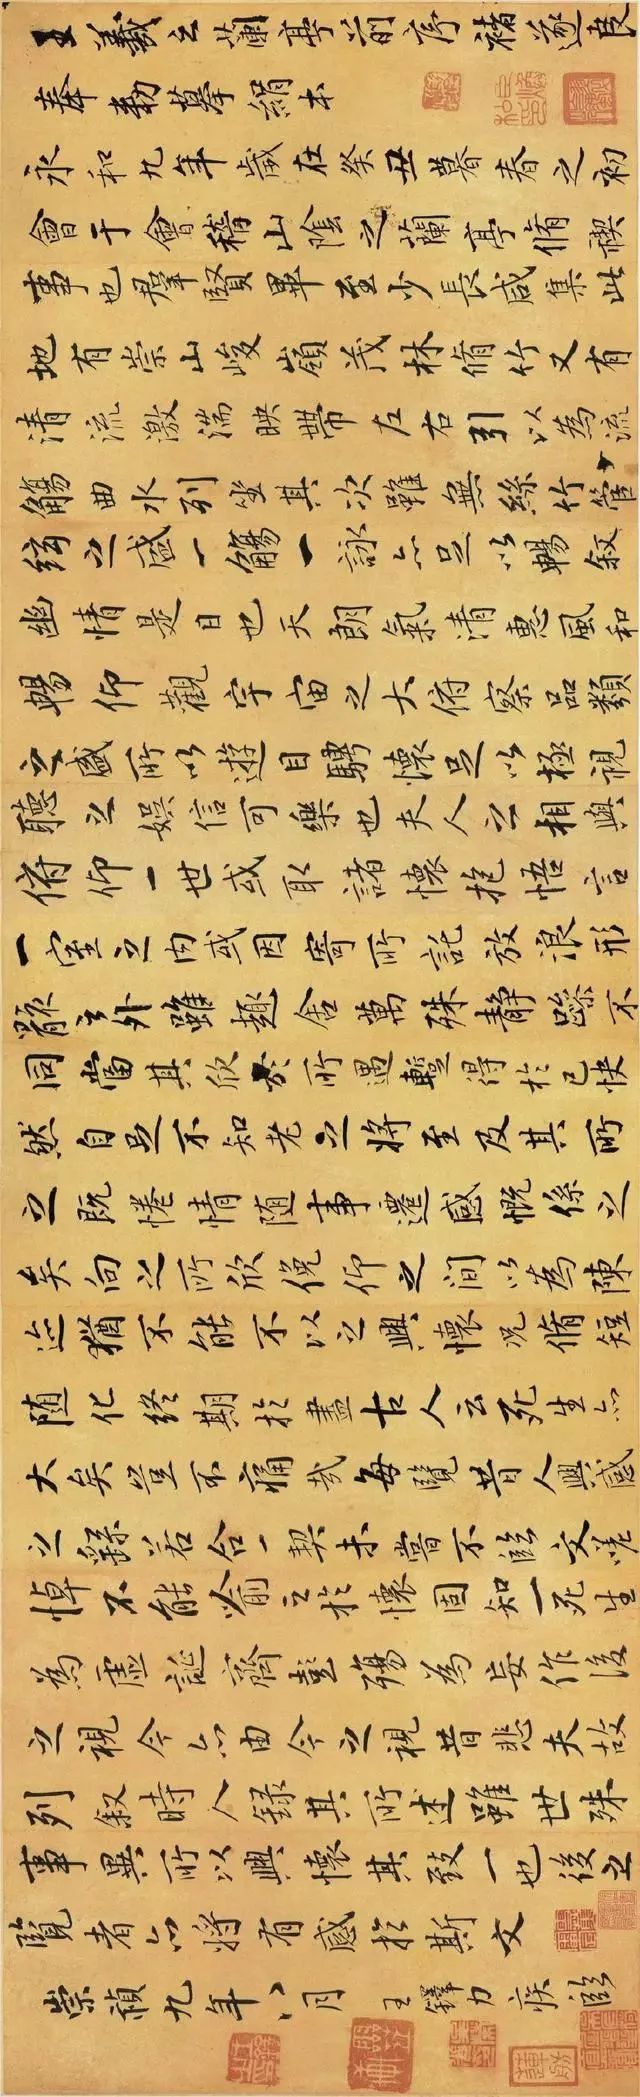 王羲之蘭亭前序褚遂良
奉勅摹絹本
永和九年歲在癸丑暮春之初
會于會稽山陰之蘭亭脩禊
事也羣賢畢至少長咸集此
地有崇山峻嶺茂林脩竹又有
清流激湍映帶左右引以為流
觴曲水列坐其次雖無絲竹管
絃之盛一觴一詠亦足以暢叙
幽情是日也天朗氣清惠風和
暢仰觀宇宙之大俯察品類
之盛所以遊目騁懷足以極視
聽之娛信可樂也夫人之相與
俯仰一世或取諸懷抱悟言
一室之內或因寄所託放浪形
骸之外雖趣舍萬殊靜躁不
同當其欣於所遇蹔得於己快
然自足不知老之將至及其所
之既惓情随事遷感慨係之
矣向之所欣俛仰之間以為陳
迹猶不能不以之興懷況脩短
随化終期於盡古人云死生亦
大矣豈不痛哉每覽昔人興感
之繇若合一契未嘗不臨文嗟
悼不能喻之於懷固知一死生
為虛誕齊彭殤為妄作後
之視今亦由今之視昔悲夫故
列叙時人錄其所述雖世殊
事異所以興懷其致一也後之
覽者亦將有感於斯文
崇禎九年八月 王鐸力疾臨